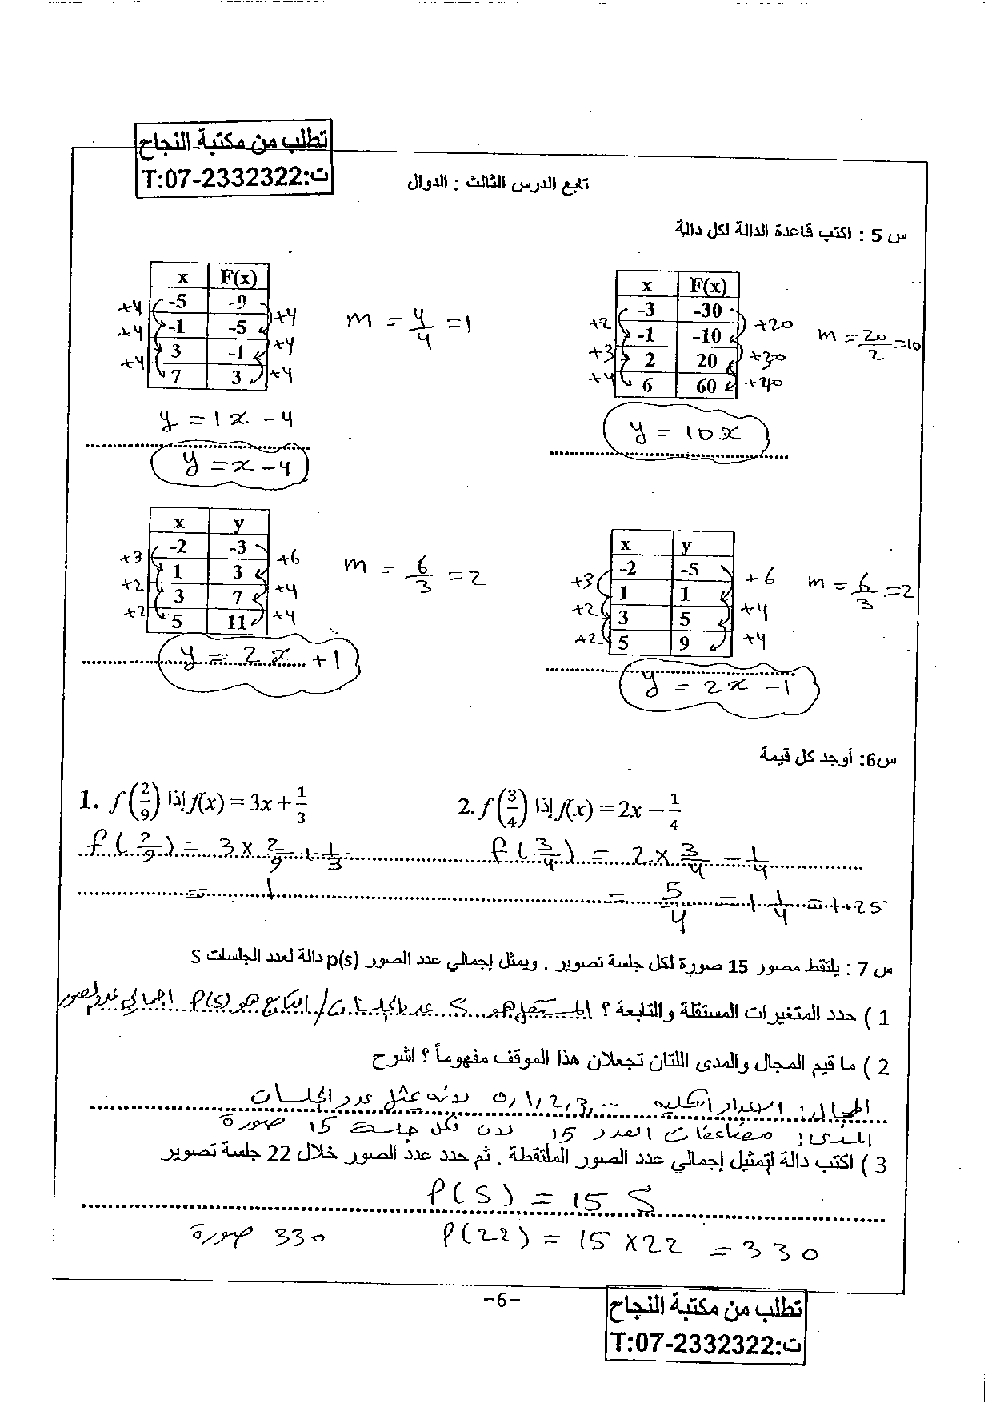 تطلب من مكتبة النجاح
ت:T:07-2332322
تابع الدرس الثالث : الدوال
س 5 : اكتب قاعدة الدالة لكل دالة
x F(x)
-3 -30
-1 -10
2 20
6 60
+2 +3 +4
+20 +30 +40
m = 20/2 = 10
y = 10x
x F(x)
-5 -9
-1 -5
3 -1
7 3
+4 +4 +4
+4 +4 +4
m = 4/4 = 1
y = 1x - 4
y = x - 4
x y
-2 -5
1 1
3 5
5 9
+3 +2 +2
+6 +4 +4
m = 6/3 = 2
y = 2x - 1
x y
-2 -3
1 3
3 7
5 11
+3 +2 +2
+6 +4 +4
m = 6/3 = 2
y = 2x + 1
س6: أوجد كل قيمة
1. f(2/9) إذا f(x) = 3x + 1/3
f(2/9) = 3 × 2/9 + 1/3
= 1
2. f(3/4) إذا f(x) = 2x − 1/4
f(3/4) = 2 × 3/4 − 1/4
= 5/4 = 1 1/4 = 1.25
س 7 : يلتقط مصور 15 صورة لكل جلسة تصوير . ويمثل إجمالي عدد الصور p(s) دالة لعدد الجلسات S
1 ) حدد المتغيرات المستقلة والتابعة ؟ المستقل هو S عدد الجلسات / التابع هو P(s) اجمالي عدد الصور
2 ) ما قيم المجال والمدى اللتان تجعلان هذا الموقف مفهوماً ؟ اشرح
المجال: الاعداد الكلية 0,1,2,3,... لانه يمثل عدد الجلسات
المدى: مضاعفات العدد 15 لان لكل جلسة 15 صورة
3 ) اكتب دالة لتمثيل إجمالي عدد الصور الملتقطة . ثم حدد عدد الصور خلال 22 جلسة تصوير
P(S) = 15 S
P(22) = 15 × 22 = 330
330 صورة
-6-
تطلب من مكتبة النجاح
ت:T:07-2332322